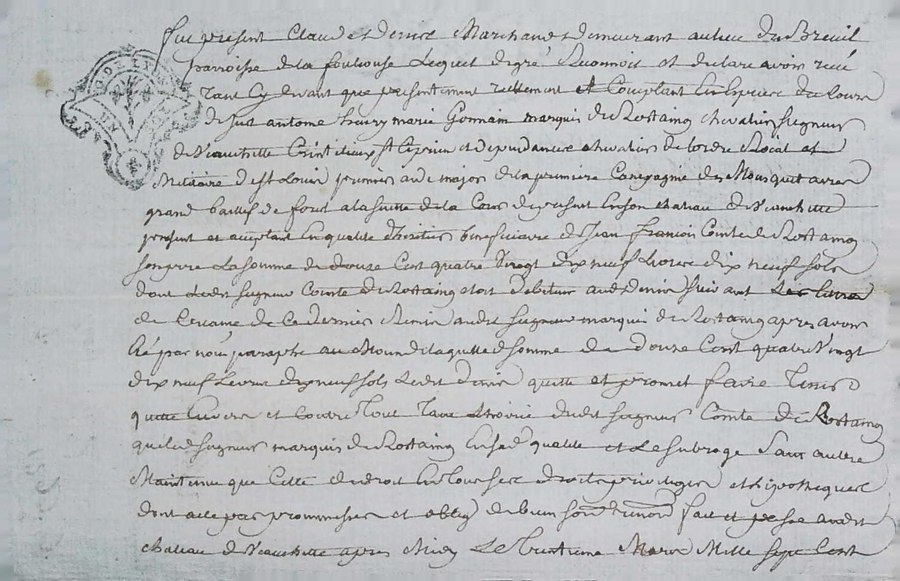 fut present Claude Denis Marchand demeurant au lieu du Breuil
parroisse de la fouillouse Lequel de gré reconnoit et declare avoir reçu
tant cy devant que presentement réellement et Comptant en especes du cours
de just antoine henry marie Germain marquis de Rostaing chevalier seigneur
de Veauchette st Cyprien et dependances chevalier de lordre Royal et
Militaire de st Louis premier aide major de la premiere Compagnie des Mousquetaires
grand baillif de forest a la suitte de la Cour de present en son chateau de Veauchette
present et acceptant en qualité d'heritier beneficiaire de Jean françois Comte de Rostaing
son pere La somme de douze Cent quatre Vingt dix neuf Livres dix neuf sols
dont Ledit seigneur Comte de Rostaing etoit debiteur audit Denis suivant
de ce dernier Remis audit seigneur marquis de Rostaing apres avoir
été par nous paraphé au de laquelle somme de douze Cent quatre Vingt
dix neuf Livres dix neuf sols Ledit Denis quitte et promet faire tenir
quitte envers et contre tous tant L'hoirie dudit seigneur Comte de Rostaing
que led seigneur marquis de Rostaing en sad qualité et Le subroge sans autre
Maintenue que Celle de droit en tous ses droits privileges et hipotheques
dont acte par promesses et oblig de biens soum renon fait et passé audit
chateau de Veauchette apres Midy Le Mars Mille sept Cent